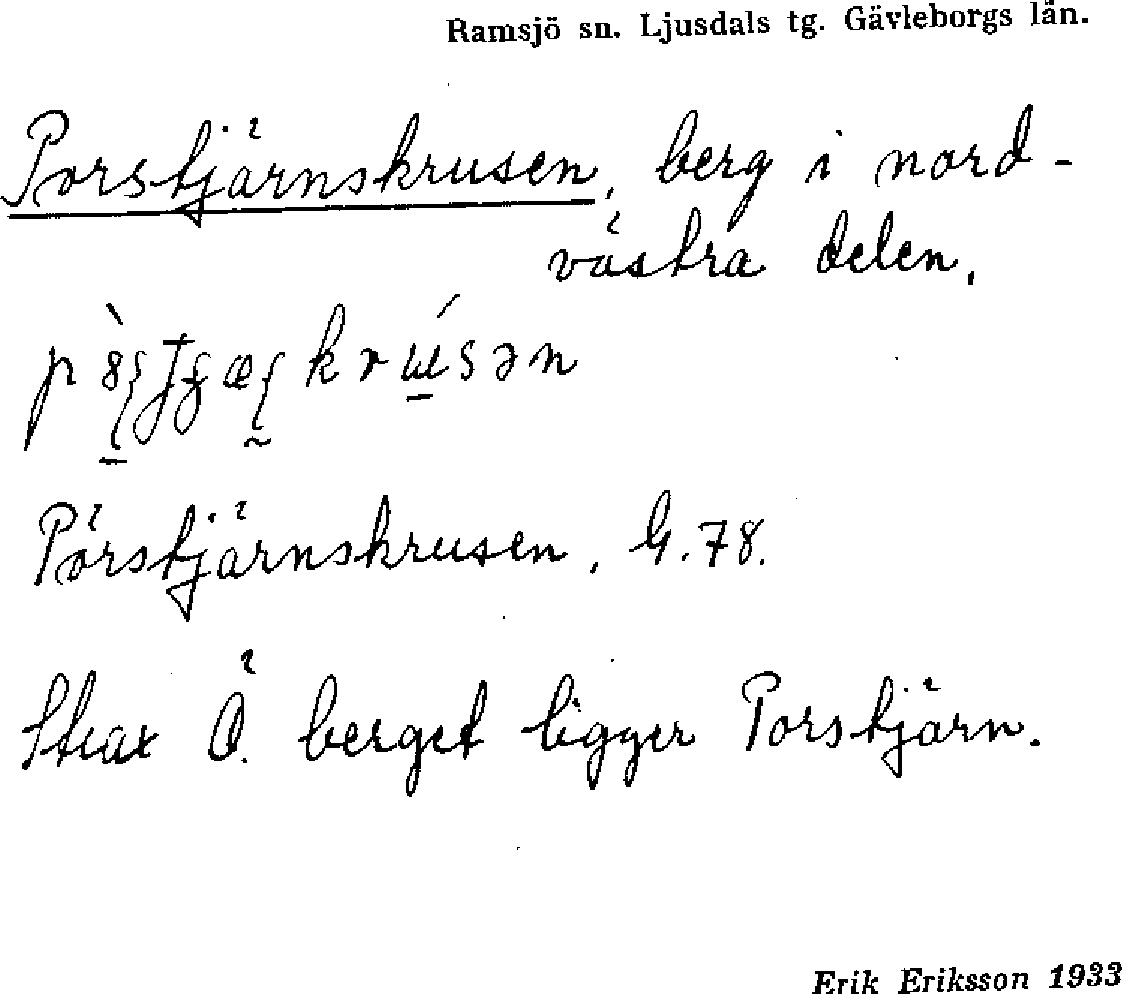 Ramsjö sn. Ljusdals tg. Gävleborgs län.
Porstjärnskrusen, berg i nord-
västra delen.
Pörstjärnskrusen, G. 78.
Strax Ö. berget ligger Porstjärn.
Erik Eriksson 1933